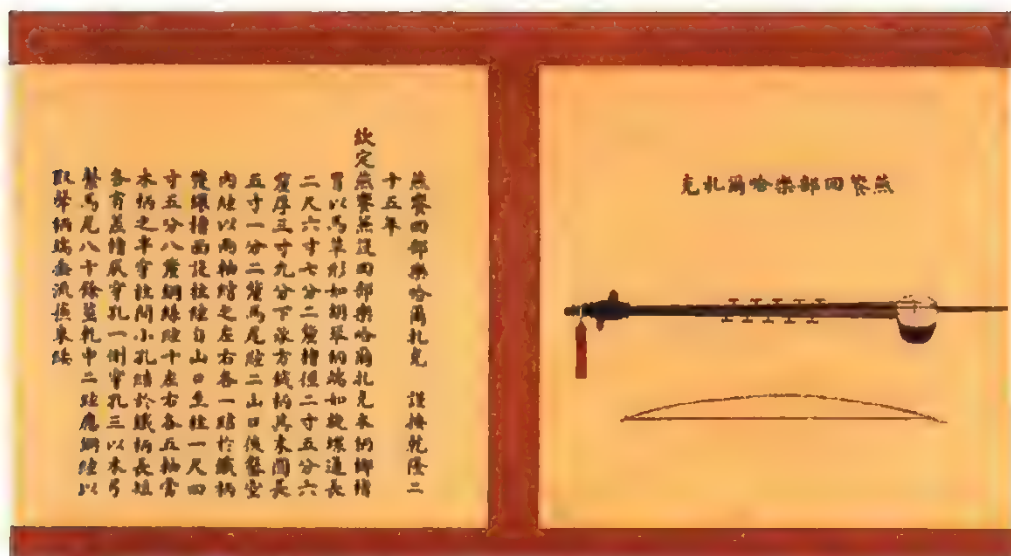 燕饗回部樂哈爾扎克
燕饗回部樂哈爾扎克 謹按乾隆二
十五年
欽定燕饗燕筵回部樂哈爾扎克木柄椰槽
冒以馬革形如胡琴柄端如旋螺通長
二尺六寸七分二釐槽徑二寸五分六
釐厚三寸九分下承方鐵柄其末圓長
五寸一分二釐馬尾絃二山口後鑿空
內絃以兩軸綰之左右各一結於鐵柄
旋環槽面設柱絃自山口至柱一尺四
寸五分八釐鋼絲絃十左右各五軸當
木柄之半穿柱間小孔結於鐵柄長短
各有差槽底穿孔一側穿孔三以木弓
繫馬尾八十餘莖軋中二絃應鋼絃以
取聲柄端垂流蘇朱